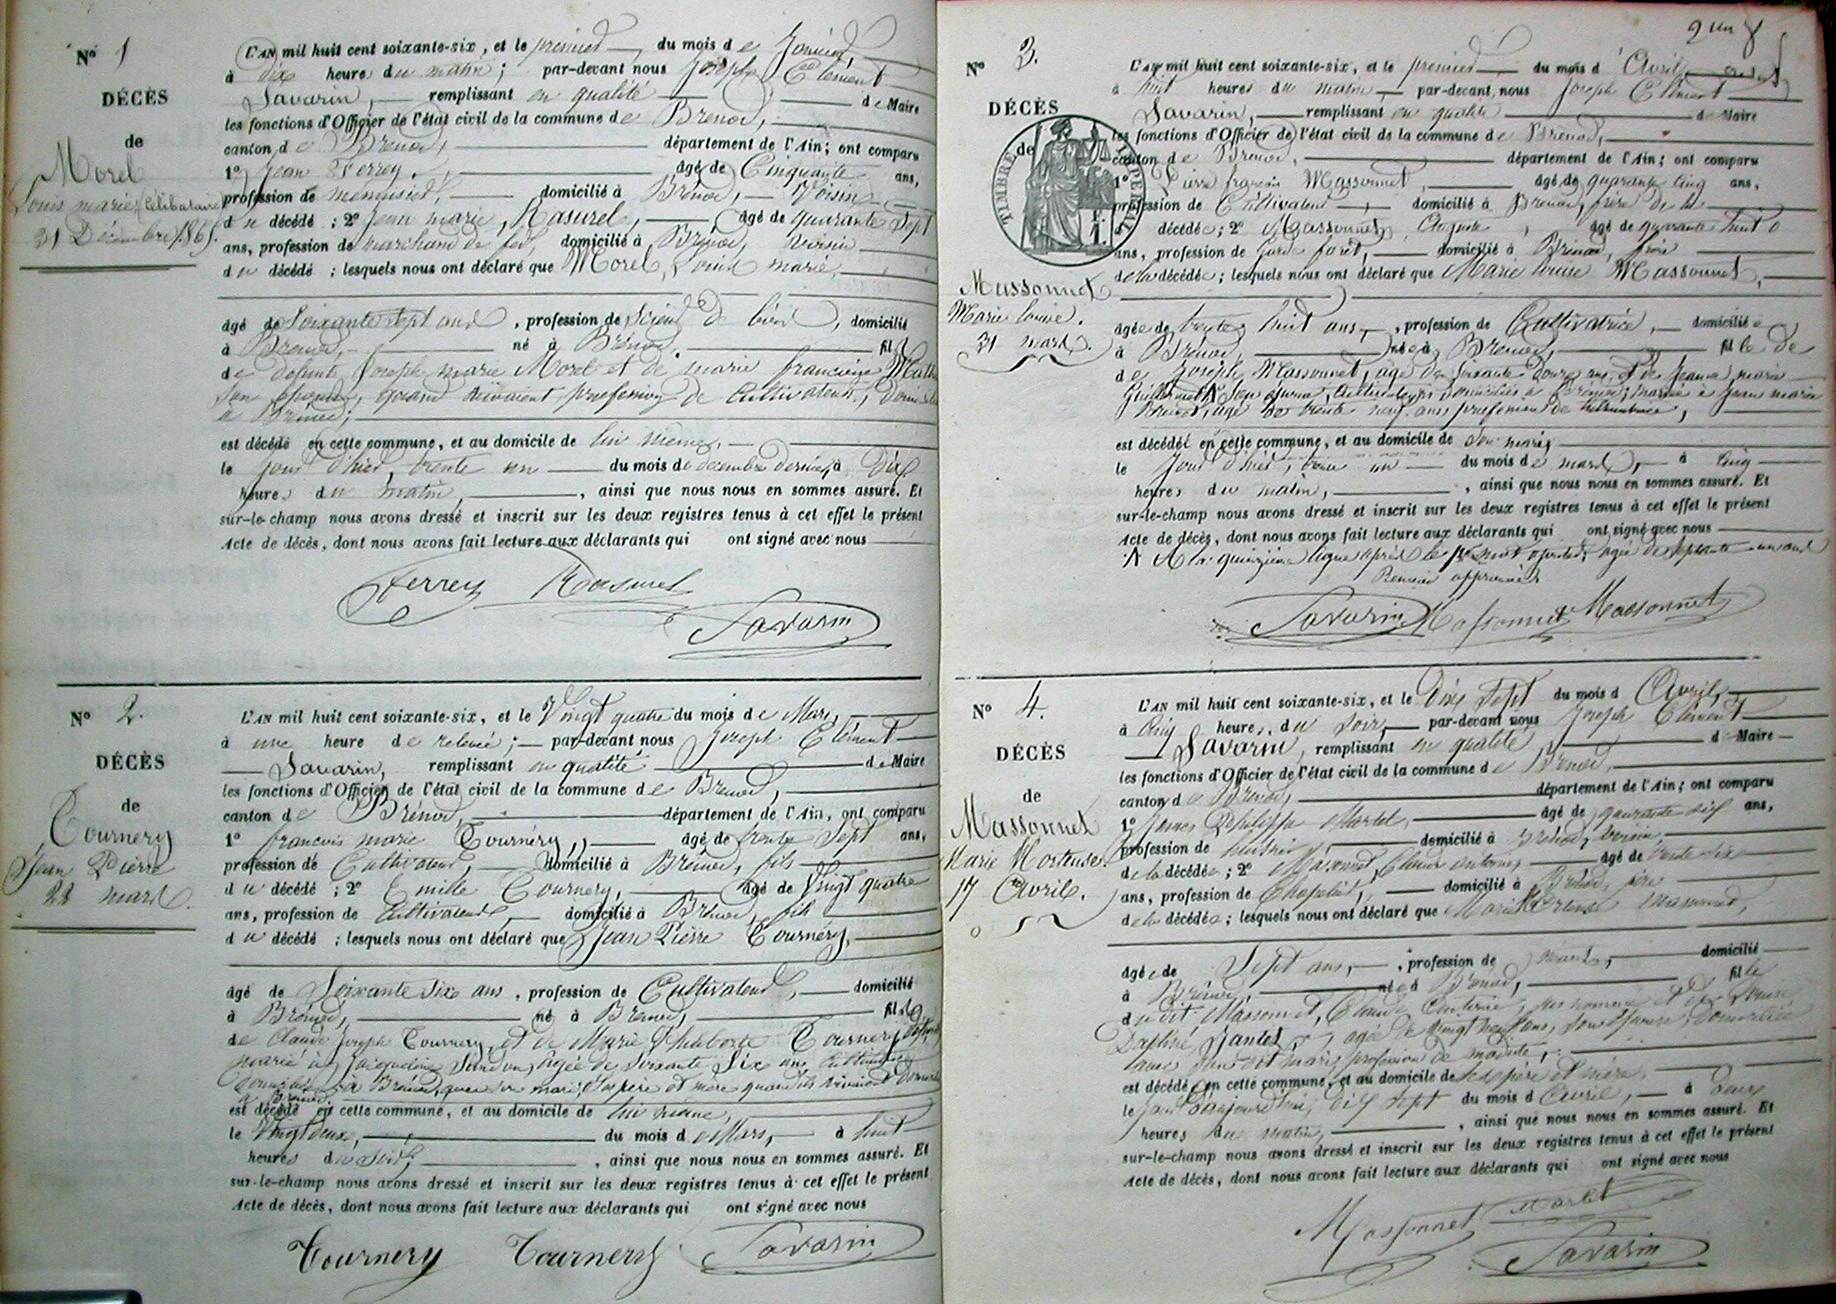 N° 1
DÉCÈS
de
Morel
Louis marie, Célibataire
31 Décembre 1865.
L'AN mil huit cent soixante-six, et le premier du mois de Janvier
à dix heures du matin; par-devant nous Joseph Clément
Savarin, remplissant en qualité de Maire
les fonctions d'Officier de l'état civil de la commune de Brenod,
canton de Brénod, département de l'Ain; ont comparu
1° Jean Ferrey, âgé de Cinquante ans,
profession de menuisier, domicilié à Brénod, Voisin
du décédé; 2° Jean marie Rasurel, âgé de quarante sept
ans, profession de marchand de fer, domicilié à Brénod, voisin
du décédé; lesquels nous ont déclaré que Morel, Louis marie,
âgé de Soixante sept ans, profession de Scieur de bois, domicilié
à Brénod, né à Brénod, fils
de defunts Joseph marie Morel et de marie francoise
Son épouse, quand vivaient profession de Cultivateurs,
à Brénod;
est décédé en cette commune, et au domicile de lui même,
le jour d'hier, trente un du mois de decembre dernier, à Dix
heures du matin, ainsi que nous nous en sommes assuré. Et
sur-le-champ nous avons dressé et inscrit sur les deux registres tenus à cet effet le présent
Acte de décès, dont nous avons fait lecture aux déclarants qui ont signé avec nous
Ferrey Rasurel
Savarin
N° 2.
DÉCÈS
de
Tournery
Jean Pierre
22 mars.
L'AN mil huit cent soixante-six, et le Vingt quatre du mois de Mars,
à une heure de relevée; par-devant nous Joseph Clément
Savarin, remplissant en qualité de Maire
les fonctions d'Officier de l'état civil de la commune de Brenod,
canton de Brénod, département de l'Ain, ont comparu
1° francois marie Tournéry, âgé de trente Sept ans,
profession de Cultivateur, domicilié à Brénod, fils
du décédé; 2° Emille Tournery, âgé de Vingt quatre
ans, profession de Cultivateur, domicilié à Brénod, fils
du décédé; lesquels nous ont déclaré que Jean Pierre Tournéry,
âgé de Soixante Six ans, profession de Cultivateur, domicilié
à Brénod, né à Brénod, fils
de Claude Joseph Tournery, et de Marie Philiberte Tournery
marié à Jacqueline agée de Soixante Six ans,
à Brénod, avec son mari, Ses père et mère quand ils vivaient
à Brénod.
est décédé en cette commune, et au domicile de lui même,
le Vingt deux, du mois de Mars, à huit
heures du Soir, ainsi que nous nous en sommes assuré. Et
sur-le-champ nous avons dressé et inscrit sur les deux registres tenus à cet effet le présent
Acte de décès, dont nous avons fait lecture aux déclarants qui ont signé avec nous
Tournery Tournery Savarin
N° 3.
DÉCÈS
de
TIMBRE IMPERIAL
Massonnet
Marie louise.
31 mars.
L'AN mil huit cent soixante-six, et le premier du mois d'Avril,
à huit heures du matin par-devant nous Joseph Clément
Savarin, remplissant en qualité de Maire
les fonctions d'Officier de l'état civil de la commune de Brénod,
canton de Brénod, département de l'Ain; ont comparu
1° Pierre françois Massonnet, âgé de quarante cinq ans,
profession de Cultivateur, domicilié à Brénod, frère de la
décédée; 2° Massonnet, Auguste, âgé de quarante huit
ans, profession de Garde foret, domicilié à Brénod, frère
de la décédée; lesquels nous ont déclaré que Marie louise Massonnet,
âgée de trente huit ans, profession de Cultivatrice, domiciliée
à Brénod, née à Brenod, fille de
de Joseph Massonnet, agé de Soixante douze ans, et de Jeanne marie
Son épouse, Cultivateurs domiciliés à Brénod, mariée à Jean marie
agé de trente neuf ans profession de
est décédée en cette commune, et au domicile de Son mari,
le jour d'hier, trente un du mois de mars, à cinq
heures du matin, ainsi que nous nous en sommes assuré. Et
sur-le-champ nous avons dressé et inscrit sur les deux registres tenus à cet effet le présent
Acte de décès, dont nous avons fait lecture aux déclarants qui ont signé avec nous
A la quinzième ligne après le mot ajoutés, agée de Septante un ans
Renvoi approuvé
Savarin Massonnet Massonnet
N° 4.
DÉCÈS
de
Massonnet
Marie Hortense.
17 Avril.
L'AN mil huit cent soixante-six, et le Dix Sept du mois d'Avril,
à Cinq heures, du Soir, par-devant nous Joseph Clément
Savarin, remplissant en qualité de Maire
les fonctions d'Officier de l'état civil de la commune de Brénod,
canton de Brenod, département de l'Ain; ont comparu
1° James Philippe Martel, âgé de quarante dix ans,
profession de domicilié à Brénod, voisin
de la décédée; 2° Massonnet, Claude antoine, âgé de trente six
ans, profession de Chapelier, domicilié à Brénod, père
de la décédée; lesquels nous ont déclaré que Marie Hortense Massonnet,
âgée de Sept ans, profession de néant, domicilié
à Brénod, née à Brenod, fille
du dit Massonnet, Claude Antoine, sus nommé et de Louise
Daphné Jantet, agée de vingt neuf ans, Son épouse, domiciliée
avec Son dit mari, profession de modiste,
est décédé en cette commune, et au domicile de Ses père et mère.
le jour d'aujourd'hui, dix Sept du mois d'Avril, à deux
heures du matin, ainsi que nous nous en sommes assuré. Et
sur-le-champ nous avons dressé et inscrit sur les deux registres tenus à cet effet le présent
Acte de décès, dont nous avons fait lecture aux déclarants qui ont signé avec nous
Massonnet Martel
Savarin